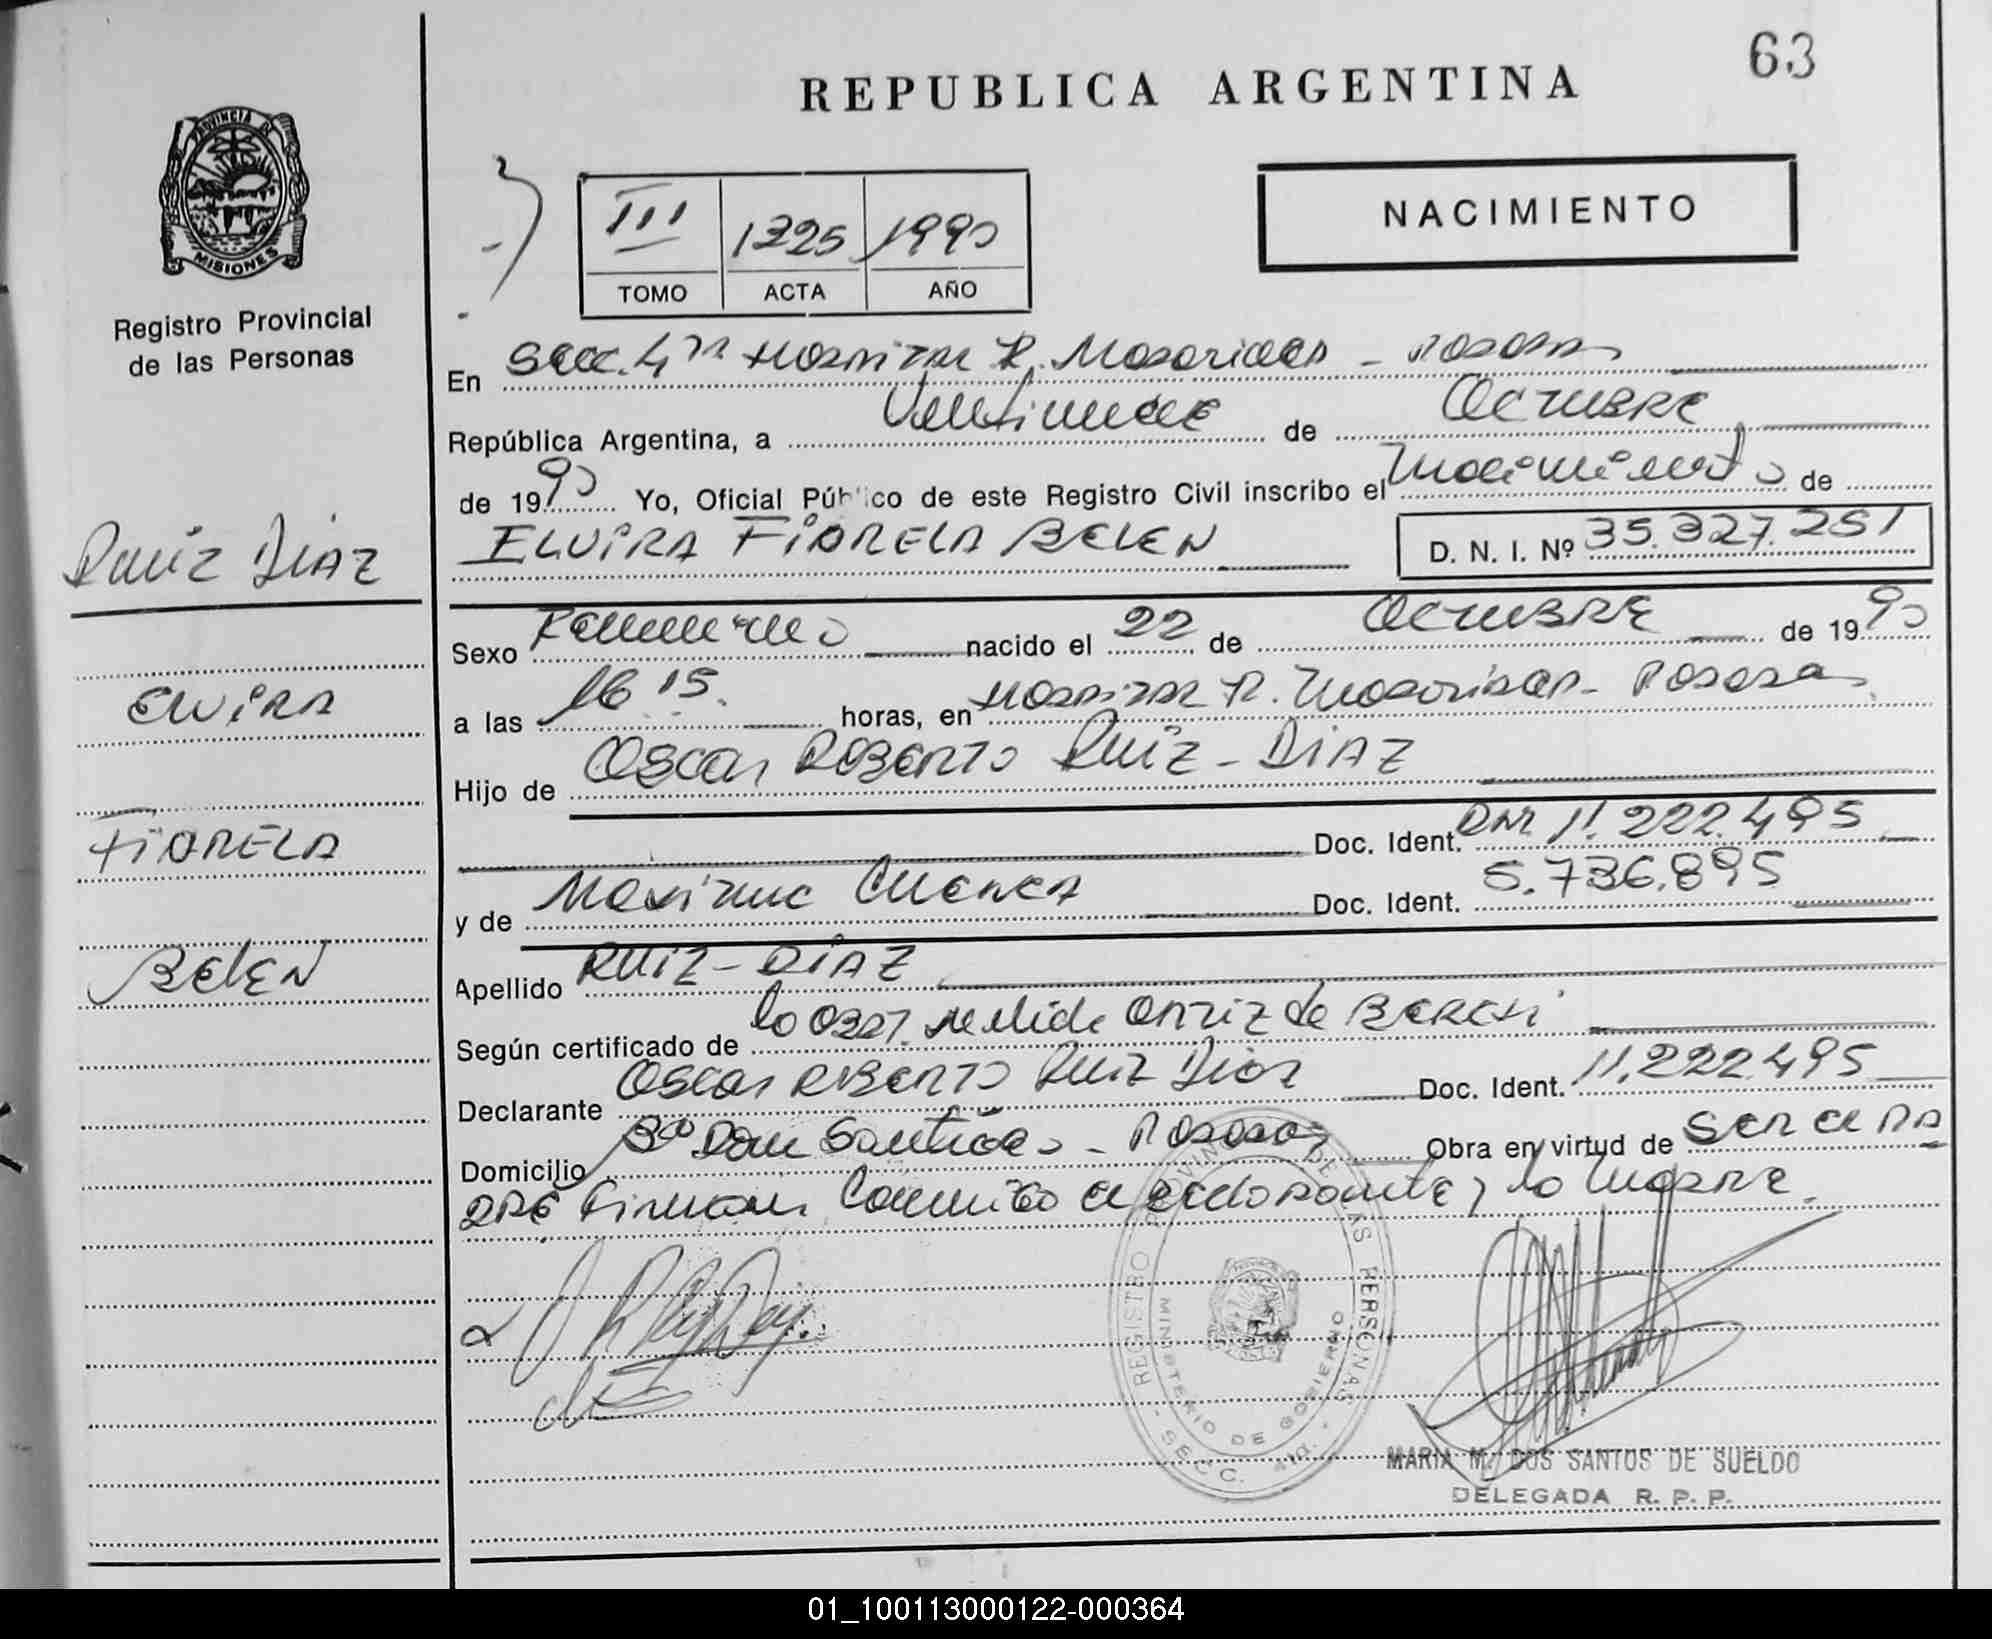 63
REPUBLICA ARGENTINA
PROVINCIA DE
MISIONES
Registro Provincial
de las Personas
III 1325 1990
TOMO ACTA AÑO
NACIMIENTO
En Secc. 4ta Hospital R. Madariaga - Posadas
República Argentina, a Veintinueve de Octubre
de 1990 Yo, Oficial Público de este Registro Civil inscribo el Nacimiento de
ELVIRA FIORELA BELEN D. N. I. Nº 35.327.251
Ruiz DIAZ
ELVIRA
FIORELA
BELEN
Sexo Femenino nacido el 22 de Octubre de 1990
a las 16 15. horas, en Hospital R. Madariaga - Posadas
Hijo de Oscar Roberto Ruiz - DIAZ
Doc. Ident. DNI 11.222.495
y de Cuenca Doc. Ident. 5.736.895
Apellido RUIZ - DIAZ
Según certificado de la Obst. Nelida Ortiz de
Declarante Oscar Roberto Ruiz Diaz Doc. Ident. 11.222.495
Domicilio Bº Don Santiago - Posadas Obra en virtud de Ser el PA
DRE Firman Conmigo el declarante y la Madre.
REGISTRO PROVINCIAL DE LAS PERSONAS
MINISTERIO DE GOBIERNO
SECC. 4ta.
MARIA M. DOS SANTOS DE SUELDO
DELEGADA R. P. P.
01_100113000122-000364